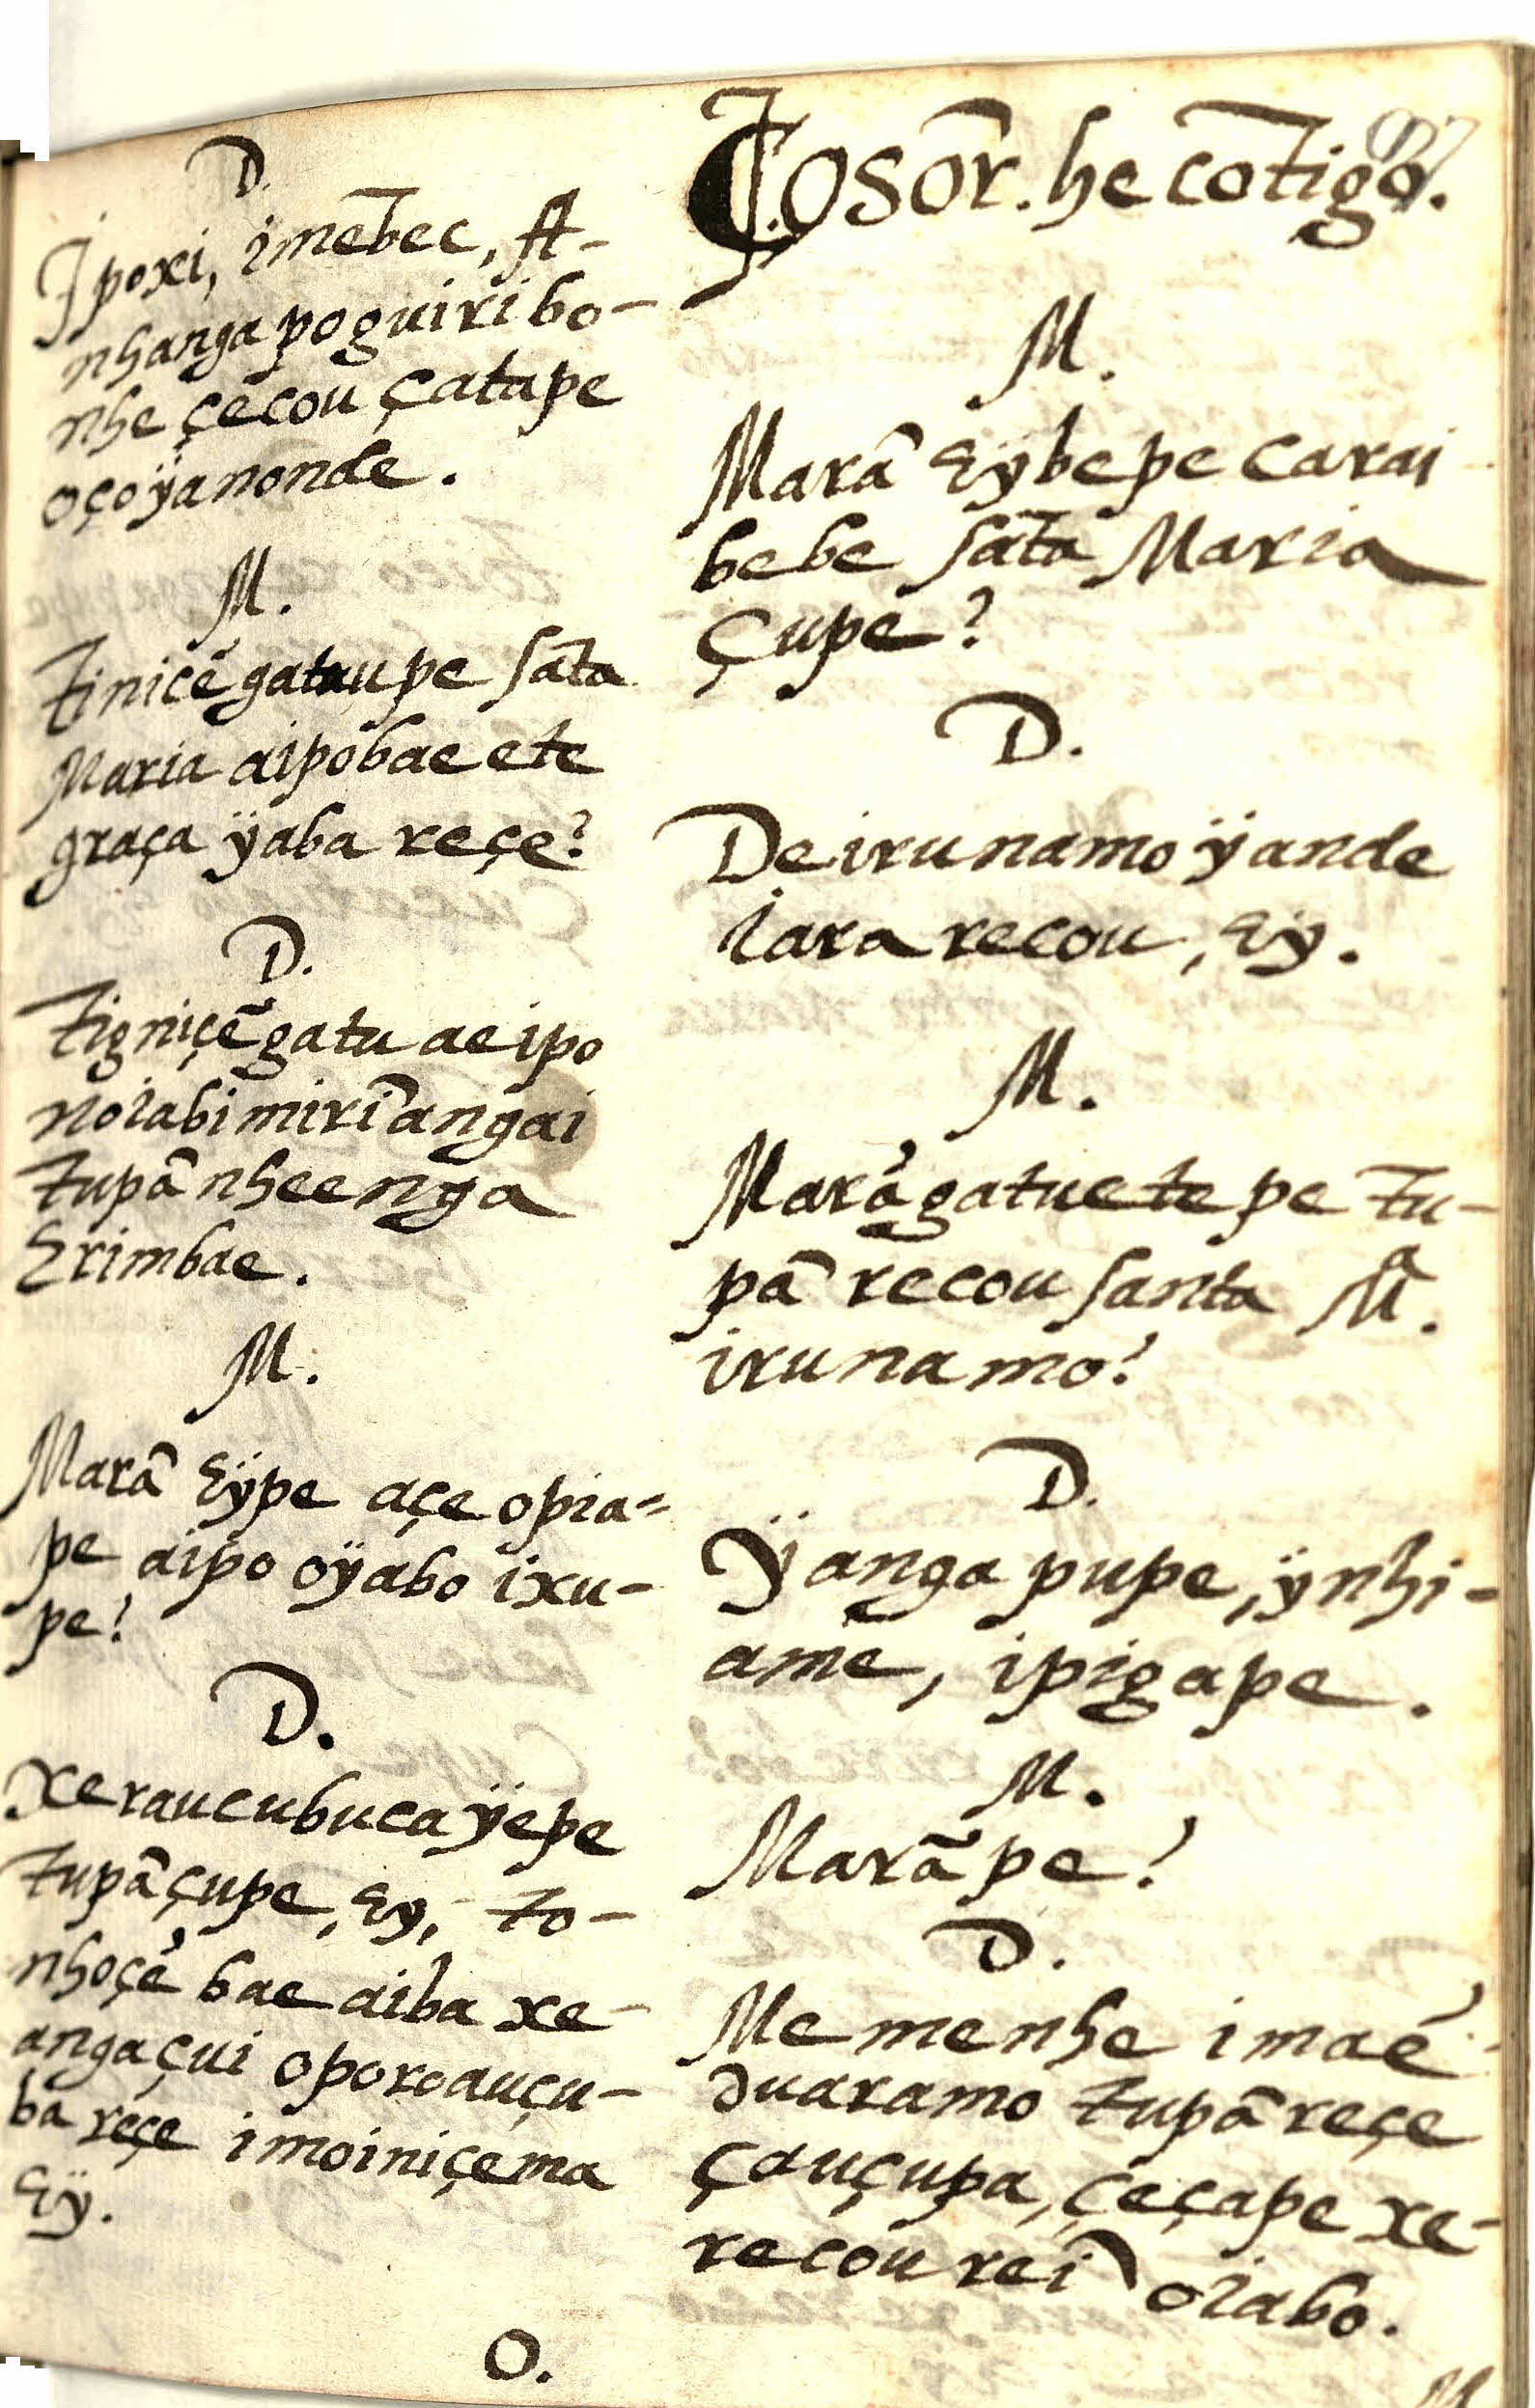 D.
Ipoxi, imẽbec, A-
nhanga poguiribo-
nhe çecou çatape
oçoÿanonde.
M.
Tiniçẽgatuupe sãta
Maria aipobae ete
graça ÿaba reçe?
D.
Tigniçẽgatu ae ipo
noiabi mirĩangai
tupã nheenga
Erimbae.
M.
Marã Eÿpe açe opia=
pe aipo oÿabo ixu-
pe?
D.
Xeraucubucaÿepe
tupãçupe, Ey, to-
nhoçẽ bae aiba xe-
angaçui oporoauçu-
ba reçe imoiniçema
Eÿ.
O.
O sõr. he cõtigo.
M.
Marã Eÿbepe carai
bebe sãta Maria
çupe?
D.
Deirunamo ÿande
iara recou, Eÿ.
M.
Marãgatuete pe tu-
pã recou santa Mª.
irunamo?
D.
Ÿanga pupe, ÿnhi-
amẽ, ipigape.
M.
Marãpe?
D.
Memenhe imaẽ
duaramo tupã reçe
çauçupa, çeçape xe-
recou reĩ oiabo.